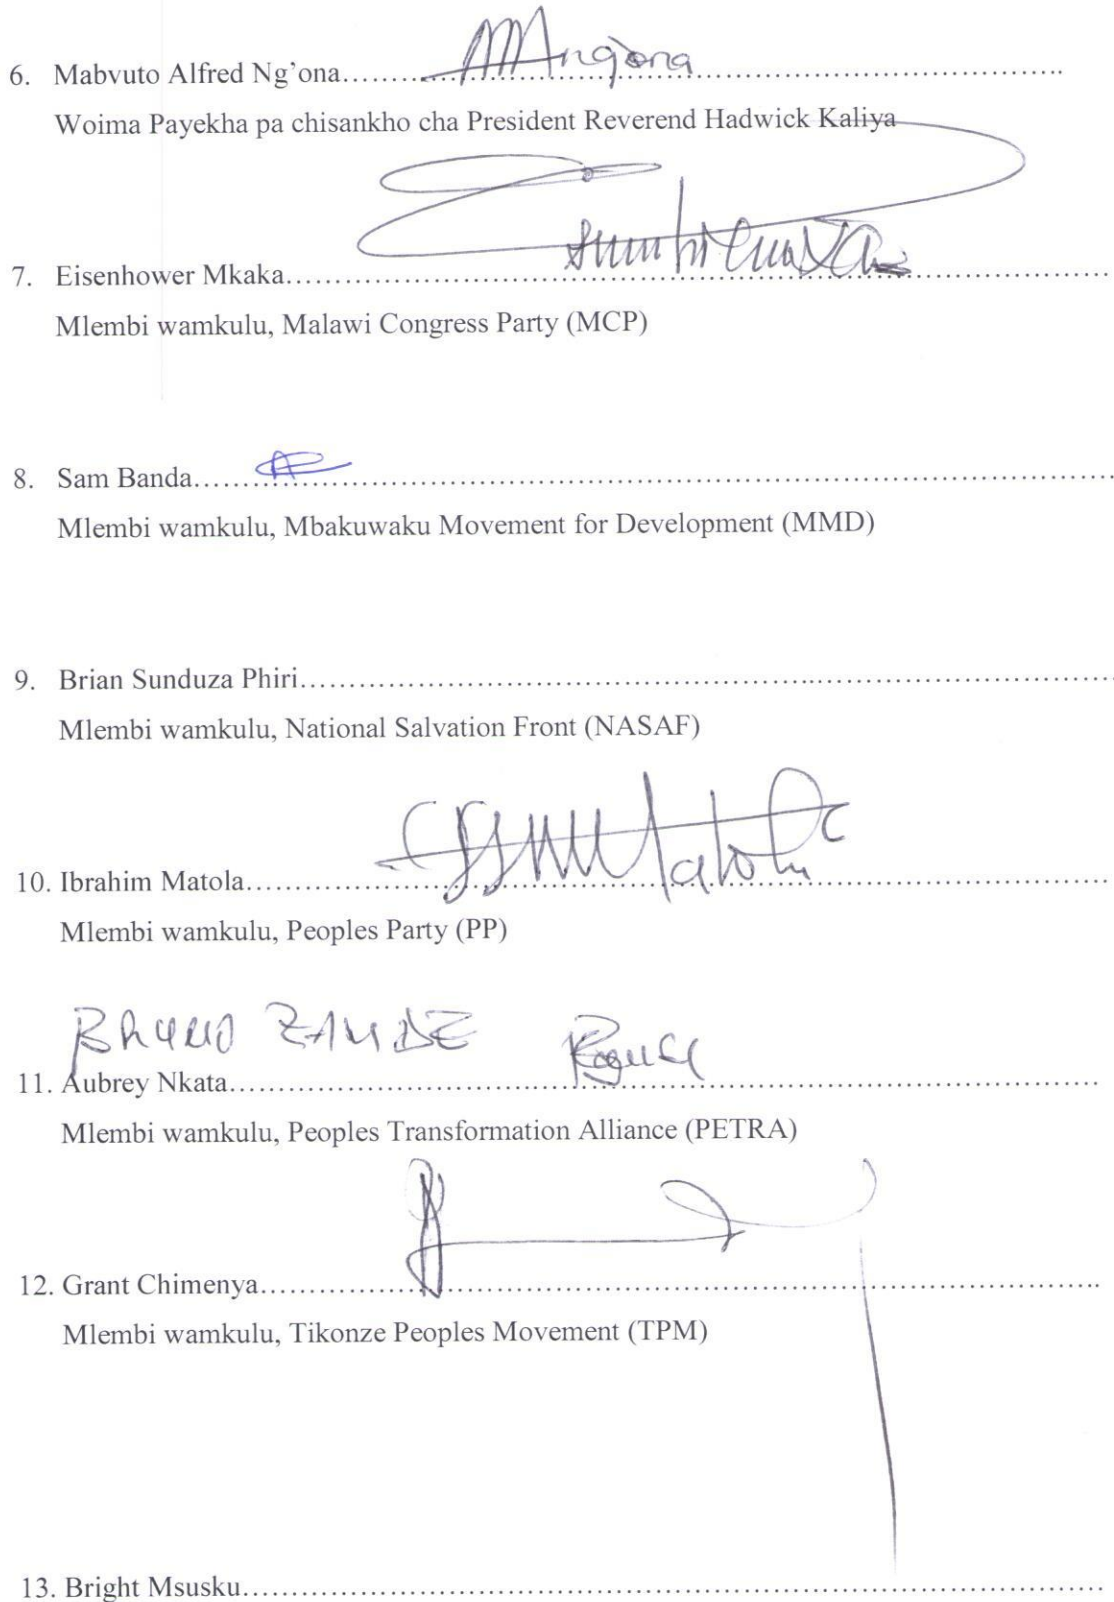 6. Mabvuto Alfred Ng’ona……………………………………………………………………..
Woima Payekha pa chisankho cha President Reverend Hadwick Kaliya
7. Eisenhower Mkaka……………………………………………………………………………
Mlembi wamkulu, Malawi Congress Party (MCP)
8. Sam Banda……………………………………………………………………………………
Mlembi wamkulu, Mbakuwaku Movement for Development (MMD)
9. Brian Sunduza Phiri……………………………………………………………………………
Mlembi wamkulu, National Salvation Front (NASAF)
10. Ibrahim Matola………………………………………………………………………………
Mlembi wamkulu, Peoples Party (PP)
ZAMBE
11. Aubrey Nkata…………………………………………………………………………………
Mlembi wamkulu, Peoples Transformation Alliance (PETRA)
12. Grant Chimenya………………………………………………………………………………
Mlembi wamkulu, Tikonze Peoples Movement (TPM)
13. Bright Msusku…………………………………………………………………………………